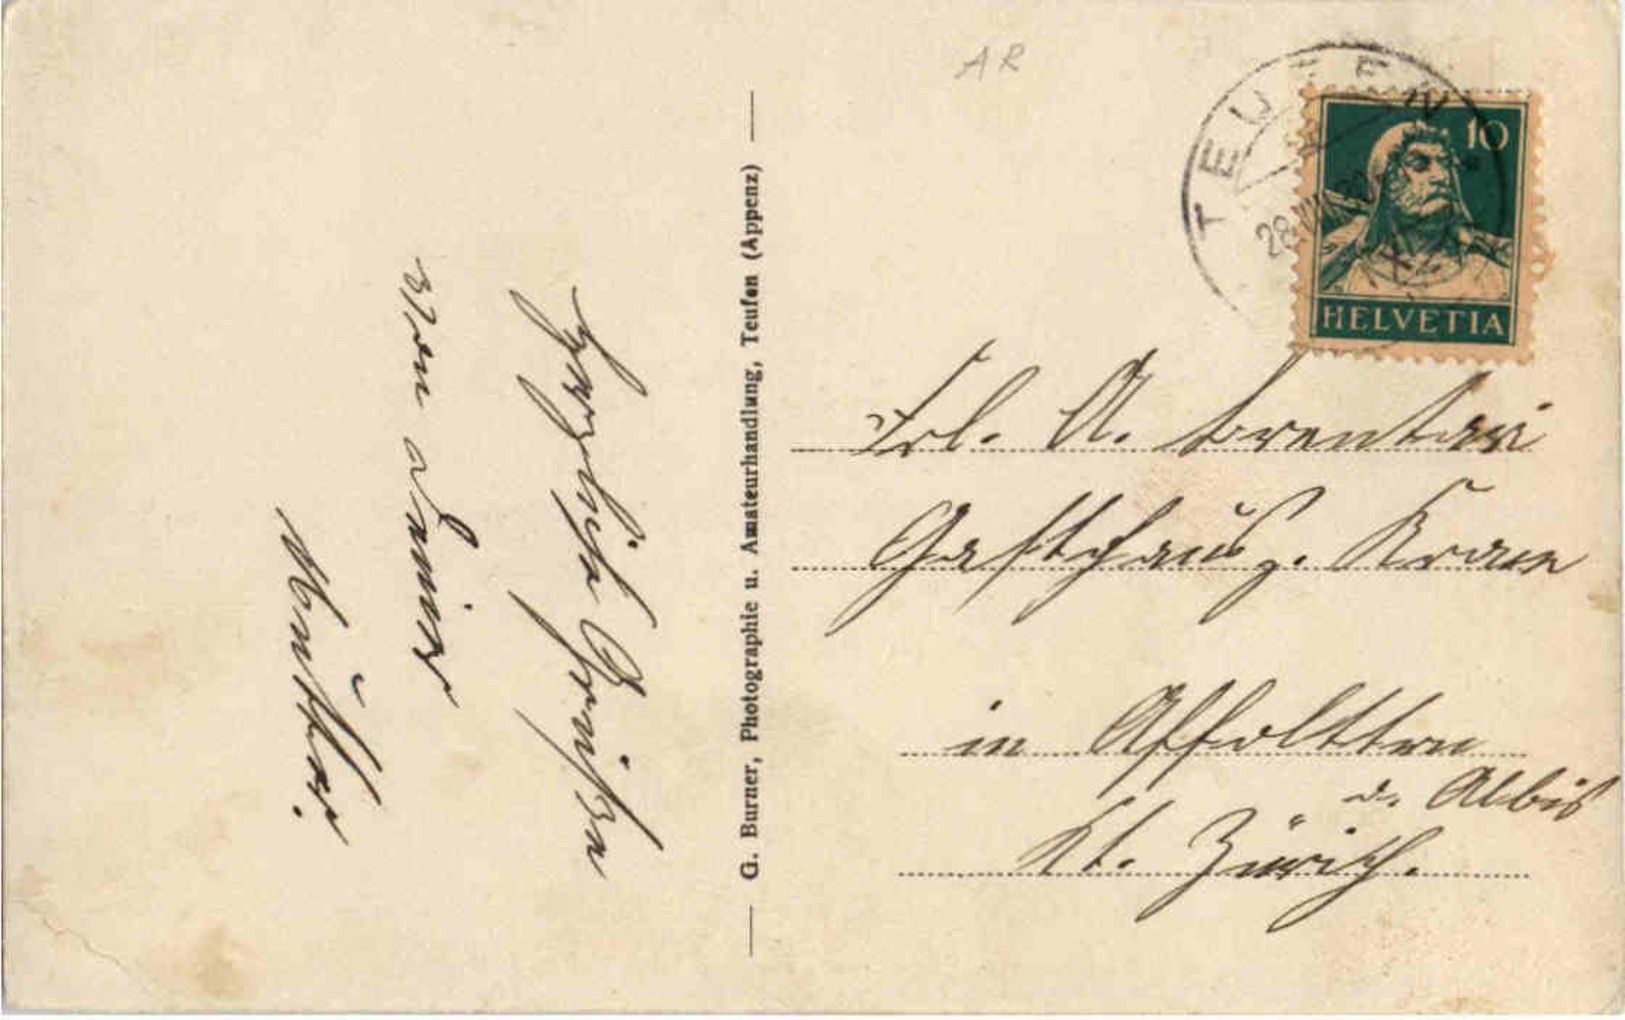 AR
TEUFEN
10
HELVETIA
G. Burner, Photographie u. Amateurhandlung, Teufen (Appenz)
Herzliche Grüsse
von deiner
Mutter.
Frl. A.
Gasthaus z. Kron
in Affoltern
a. Albis
Kt. Zürich.